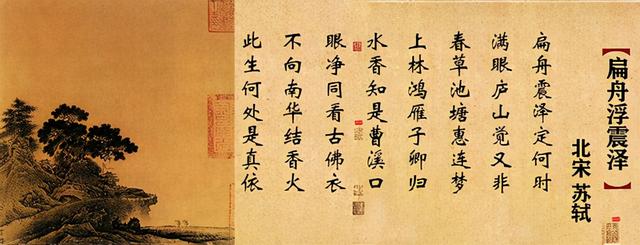 【扁舟浮震泽】
北宋 苏轼
扁舟震泽定何时
满眼庐山觉又非
春草池塘惠连梦
上林鸿雁子卿归
水香知是曹溪口
眼净同看古佛衣
不向南华结香火
此生何处是真依